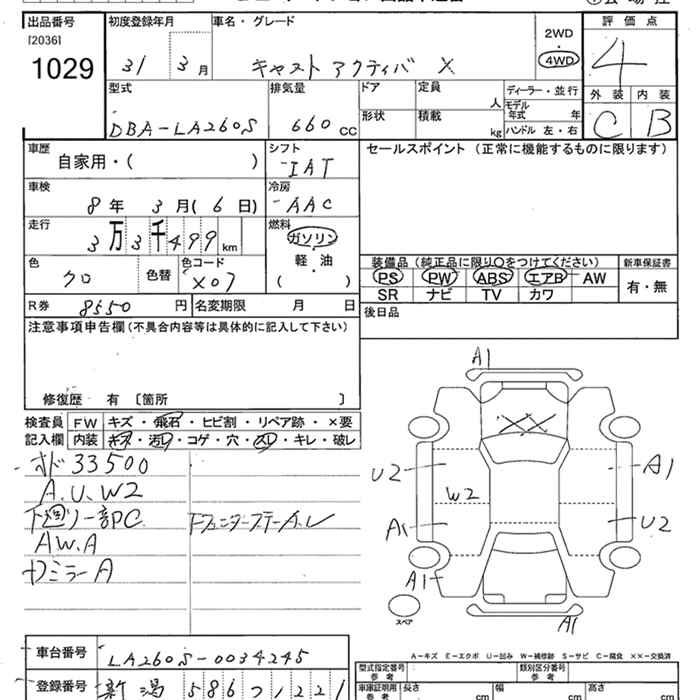 出品番号 初度登録年月 車名・グレード 2WD・4WD 評価点
[2036]
1029 31 3月 キャスト アクティバ X 4
型式 排気量 ドア 定員 人 ディーラー・並行 外装 内装
DBA-LA260S 660 CC 形状 積載 kg モデル年式 年 ハンドル 左・右 C B
車歴 シフト セールスポイント (正常に機能するものに限ります)
自家用・( ) IAT
車検 冷房
8年 3月(6日) AAC
走行 燃料
3万3千499km ガソリン
軽・油
( )
色 色替 色コード 装備品 (純正品に限り○をつけてください) 新車保証書
クロ X07 PS PW ABS エアB AW 有・無
SR ナビ TV カワ
R券 8550円 名変期限 月 日 後日品
注意事項申告欄(不具合内容等は具体的に記入して下さい)
修復歴 有 〔箇所 〕
検査員 FW キズ・飛石・ヒビ割・リペア跡・×要
記入欄 内装 キズ・汚レ・コゲ・穴・スレ・キレ・破レ
33500
A.U.W2
下廻リ一部PC
AW.A
ミラーA
A1
XX
U2 A1
W2
A1 U2
A1
スペア A1
A-キズ E-エクボ U-凹み W-補修跡 S-サビ C-腐食 ××-交換済
車台番号 LA260S-0034245
型式指定番号 参考 類別区分番号 参考
登録番号 新潟 586 1221
車庫証明用 参考 長さ cm 幅 cm 高さ cm